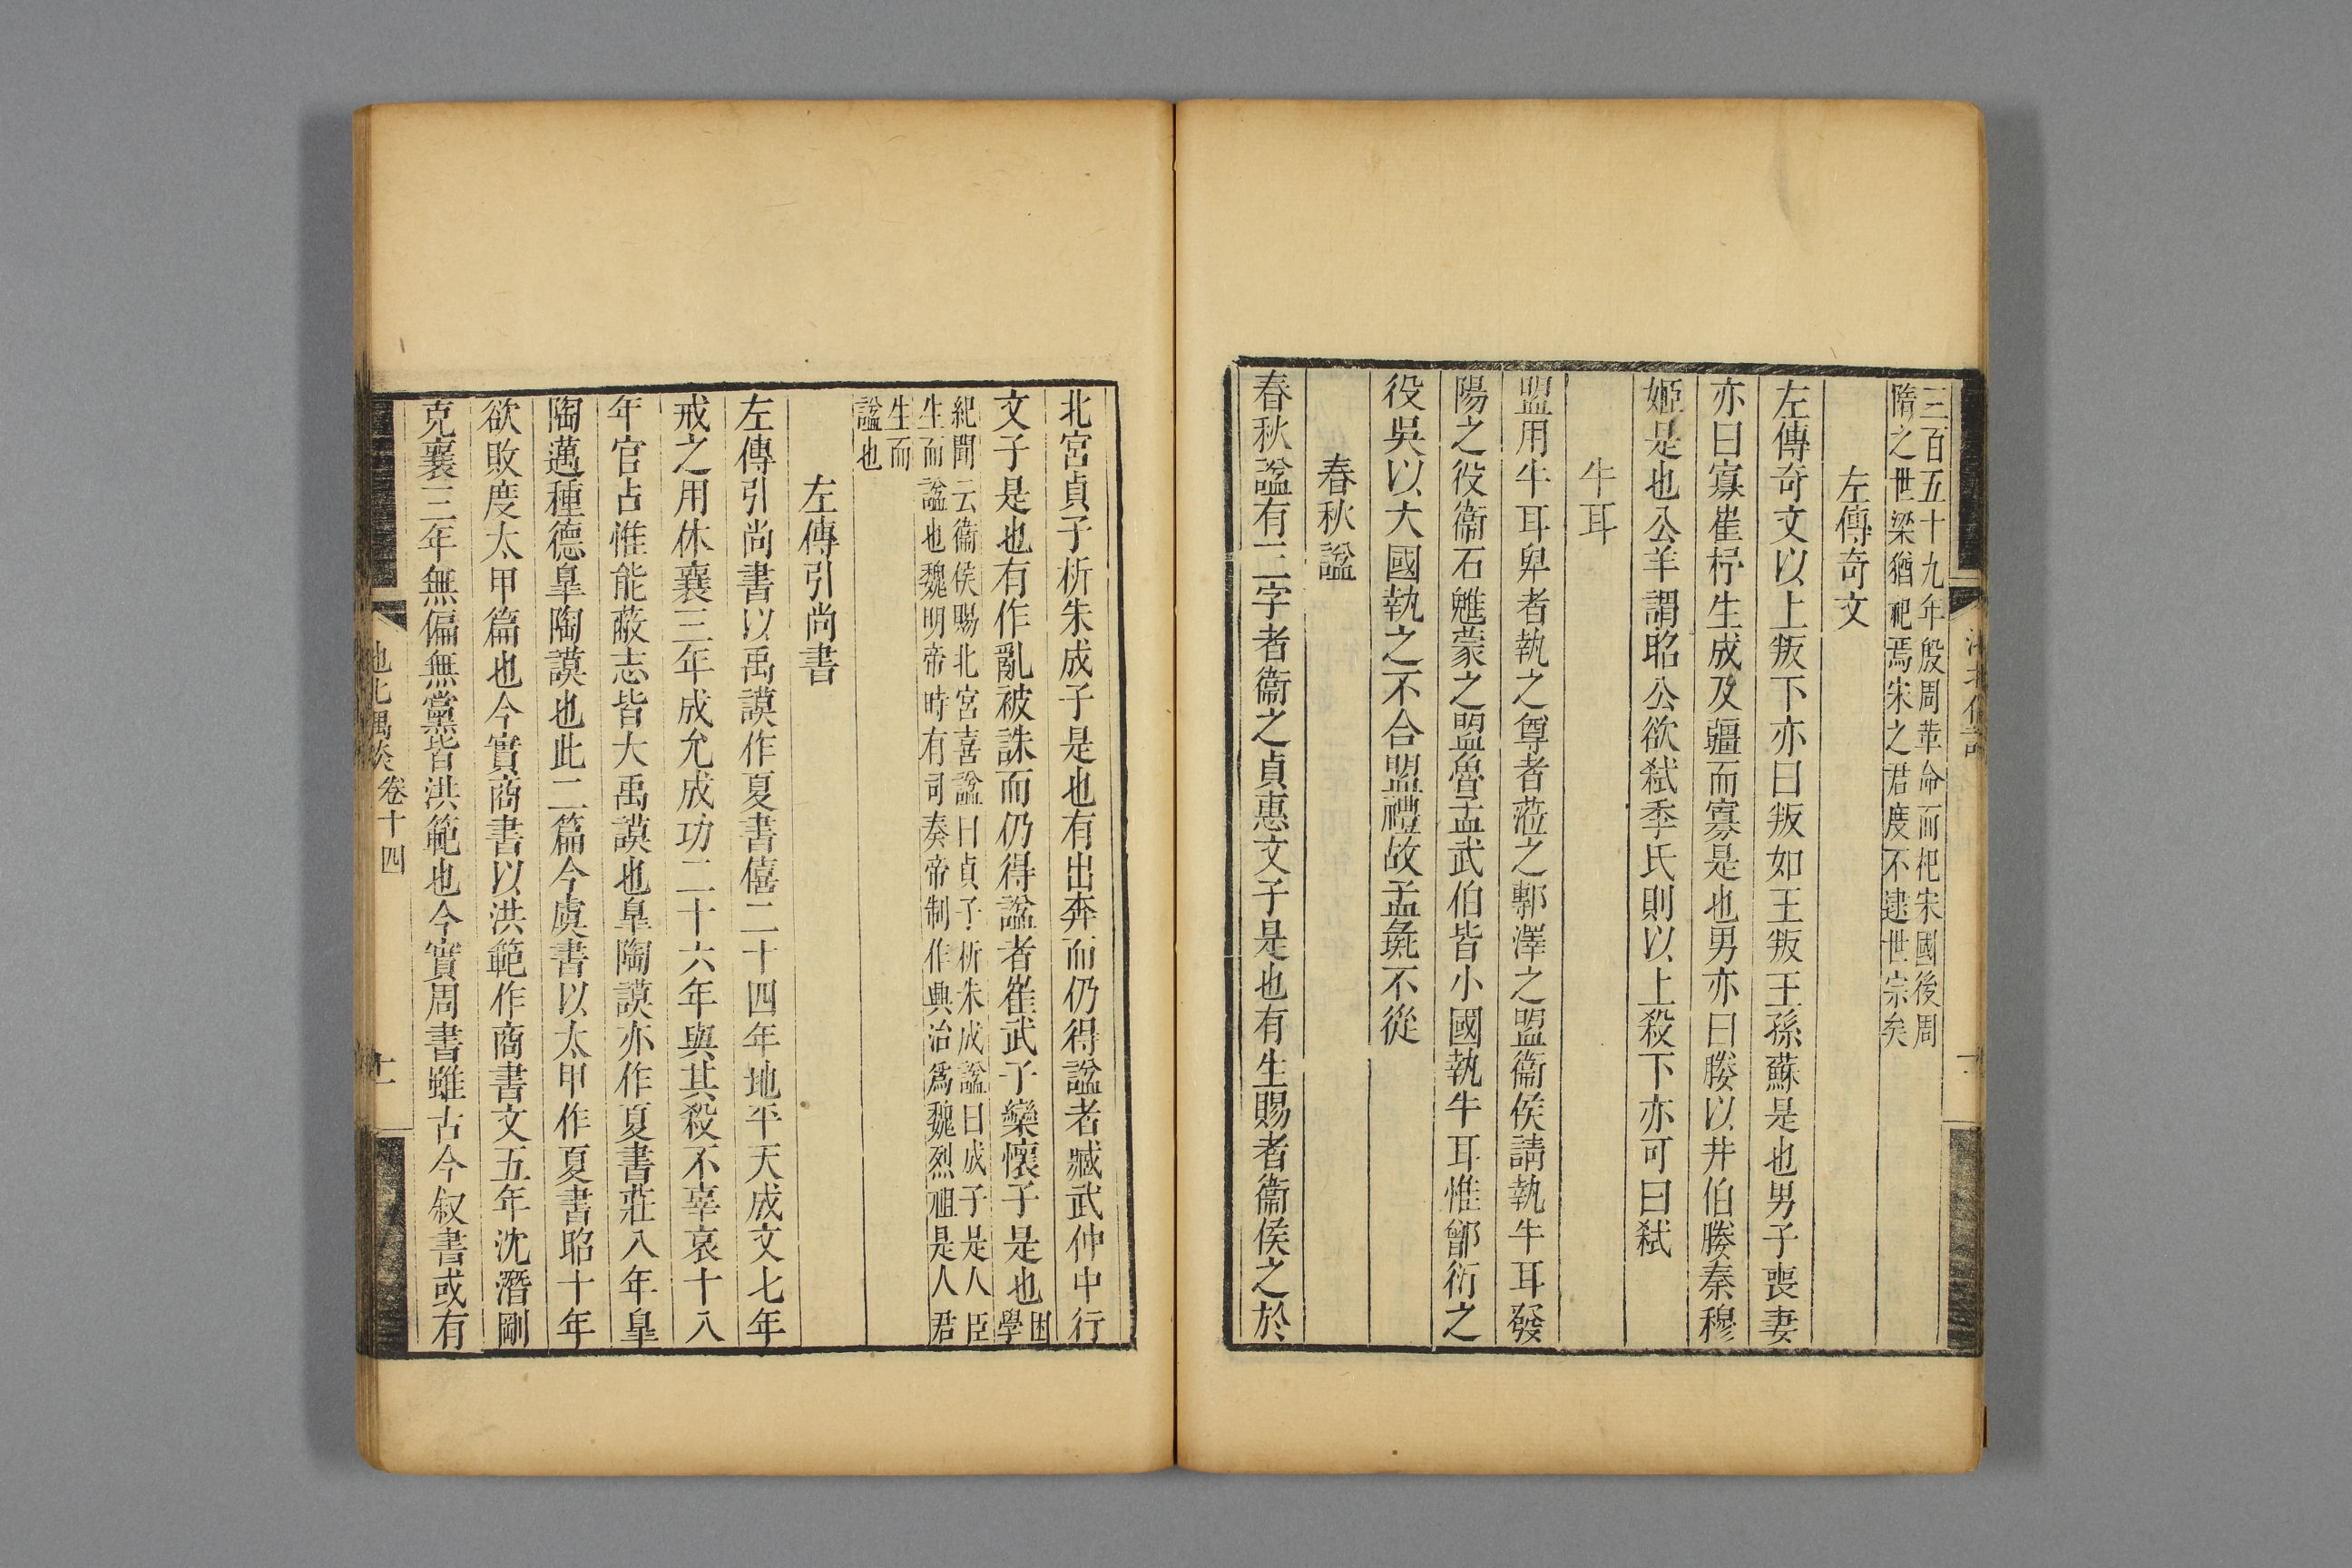 三百五十九年殷周革命而杞宋國後周
隋之世梁猶祀焉宋之君度不逮世宗矣
左傳奇文
左傳奇文以上叛下亦曰叛如王叛王孫蘇是也男子喪妻
亦曰寡崔杼生成及疆而寡是也男亦曰媵以井伯媵秦穆
姬是也公羊謂昭公欲弑季氏則以上殺下亦可曰弑
牛耳
盟用牛耳卑者執之尊者蒞之鄟澤之盟衞侯請執牛耳發
陽之役衞石魋蒙之盟魯孟武伯皆小國執牛耳惟鄫衍之
役吳以大國執之不合盟禮故孟彘不從
春秋諡
春秋諡有三字者衞之貞惠文子是也有生賜者衞侯之於
北宮貞子析朱成子是也有出奔而仍得諡者臧武仲中行
文子是也有作亂被誅而仍得諡者崔武子欒懷子是也困
學
紀聞云衞侯賜北宮喜諡曰貞子析朱成諡曰成子是人臣
生而諡也魏明帝時有司奏帝制作興治爲魏烈祖是人君
生而
諡也
左傳引尚書
左傳引尚書以禹謨作夏書僖二十四年地平天成文七年
戒之用休襄三年成允成功二十六年與其殺不辜哀十八
年官占惟能蔽志皆大禹謨也皐陶謨亦作夏書莊八年皐
陶邁種德皐陶謨也此二篇今虞書以太甲作夏書昭十年
欲敗度太甲篇也今實商書以洪範作商書文五年沈潛剛
克襄三年無偏無黨皆洪範也今實周書雖古今叙書或有
池北偶談 卷十四
十一